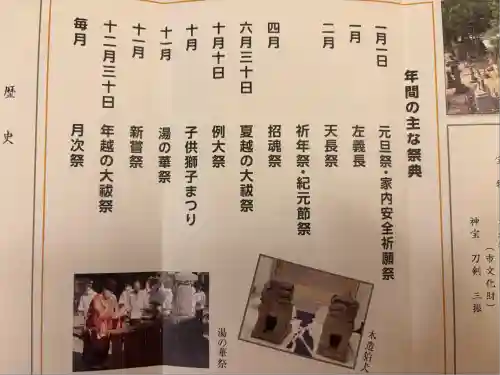 年間の主な祭典
一月一日　元旦祭・家内安全祈願祭
一月　左義長
二月　天長祭
祈年祭・紀元節祭
四月　招魂祭
六月三十日　夏越の大祓祭
十月十日　例大祭
十月　子供獅子まつり
十一月　湯の華祭
十一月　新嘗祭
十二月三十日　年越の大祓祭
毎月　月次祭
木造狛犬
湯の華祭
（市文化財）
神宝　刀剣　三振
歴史